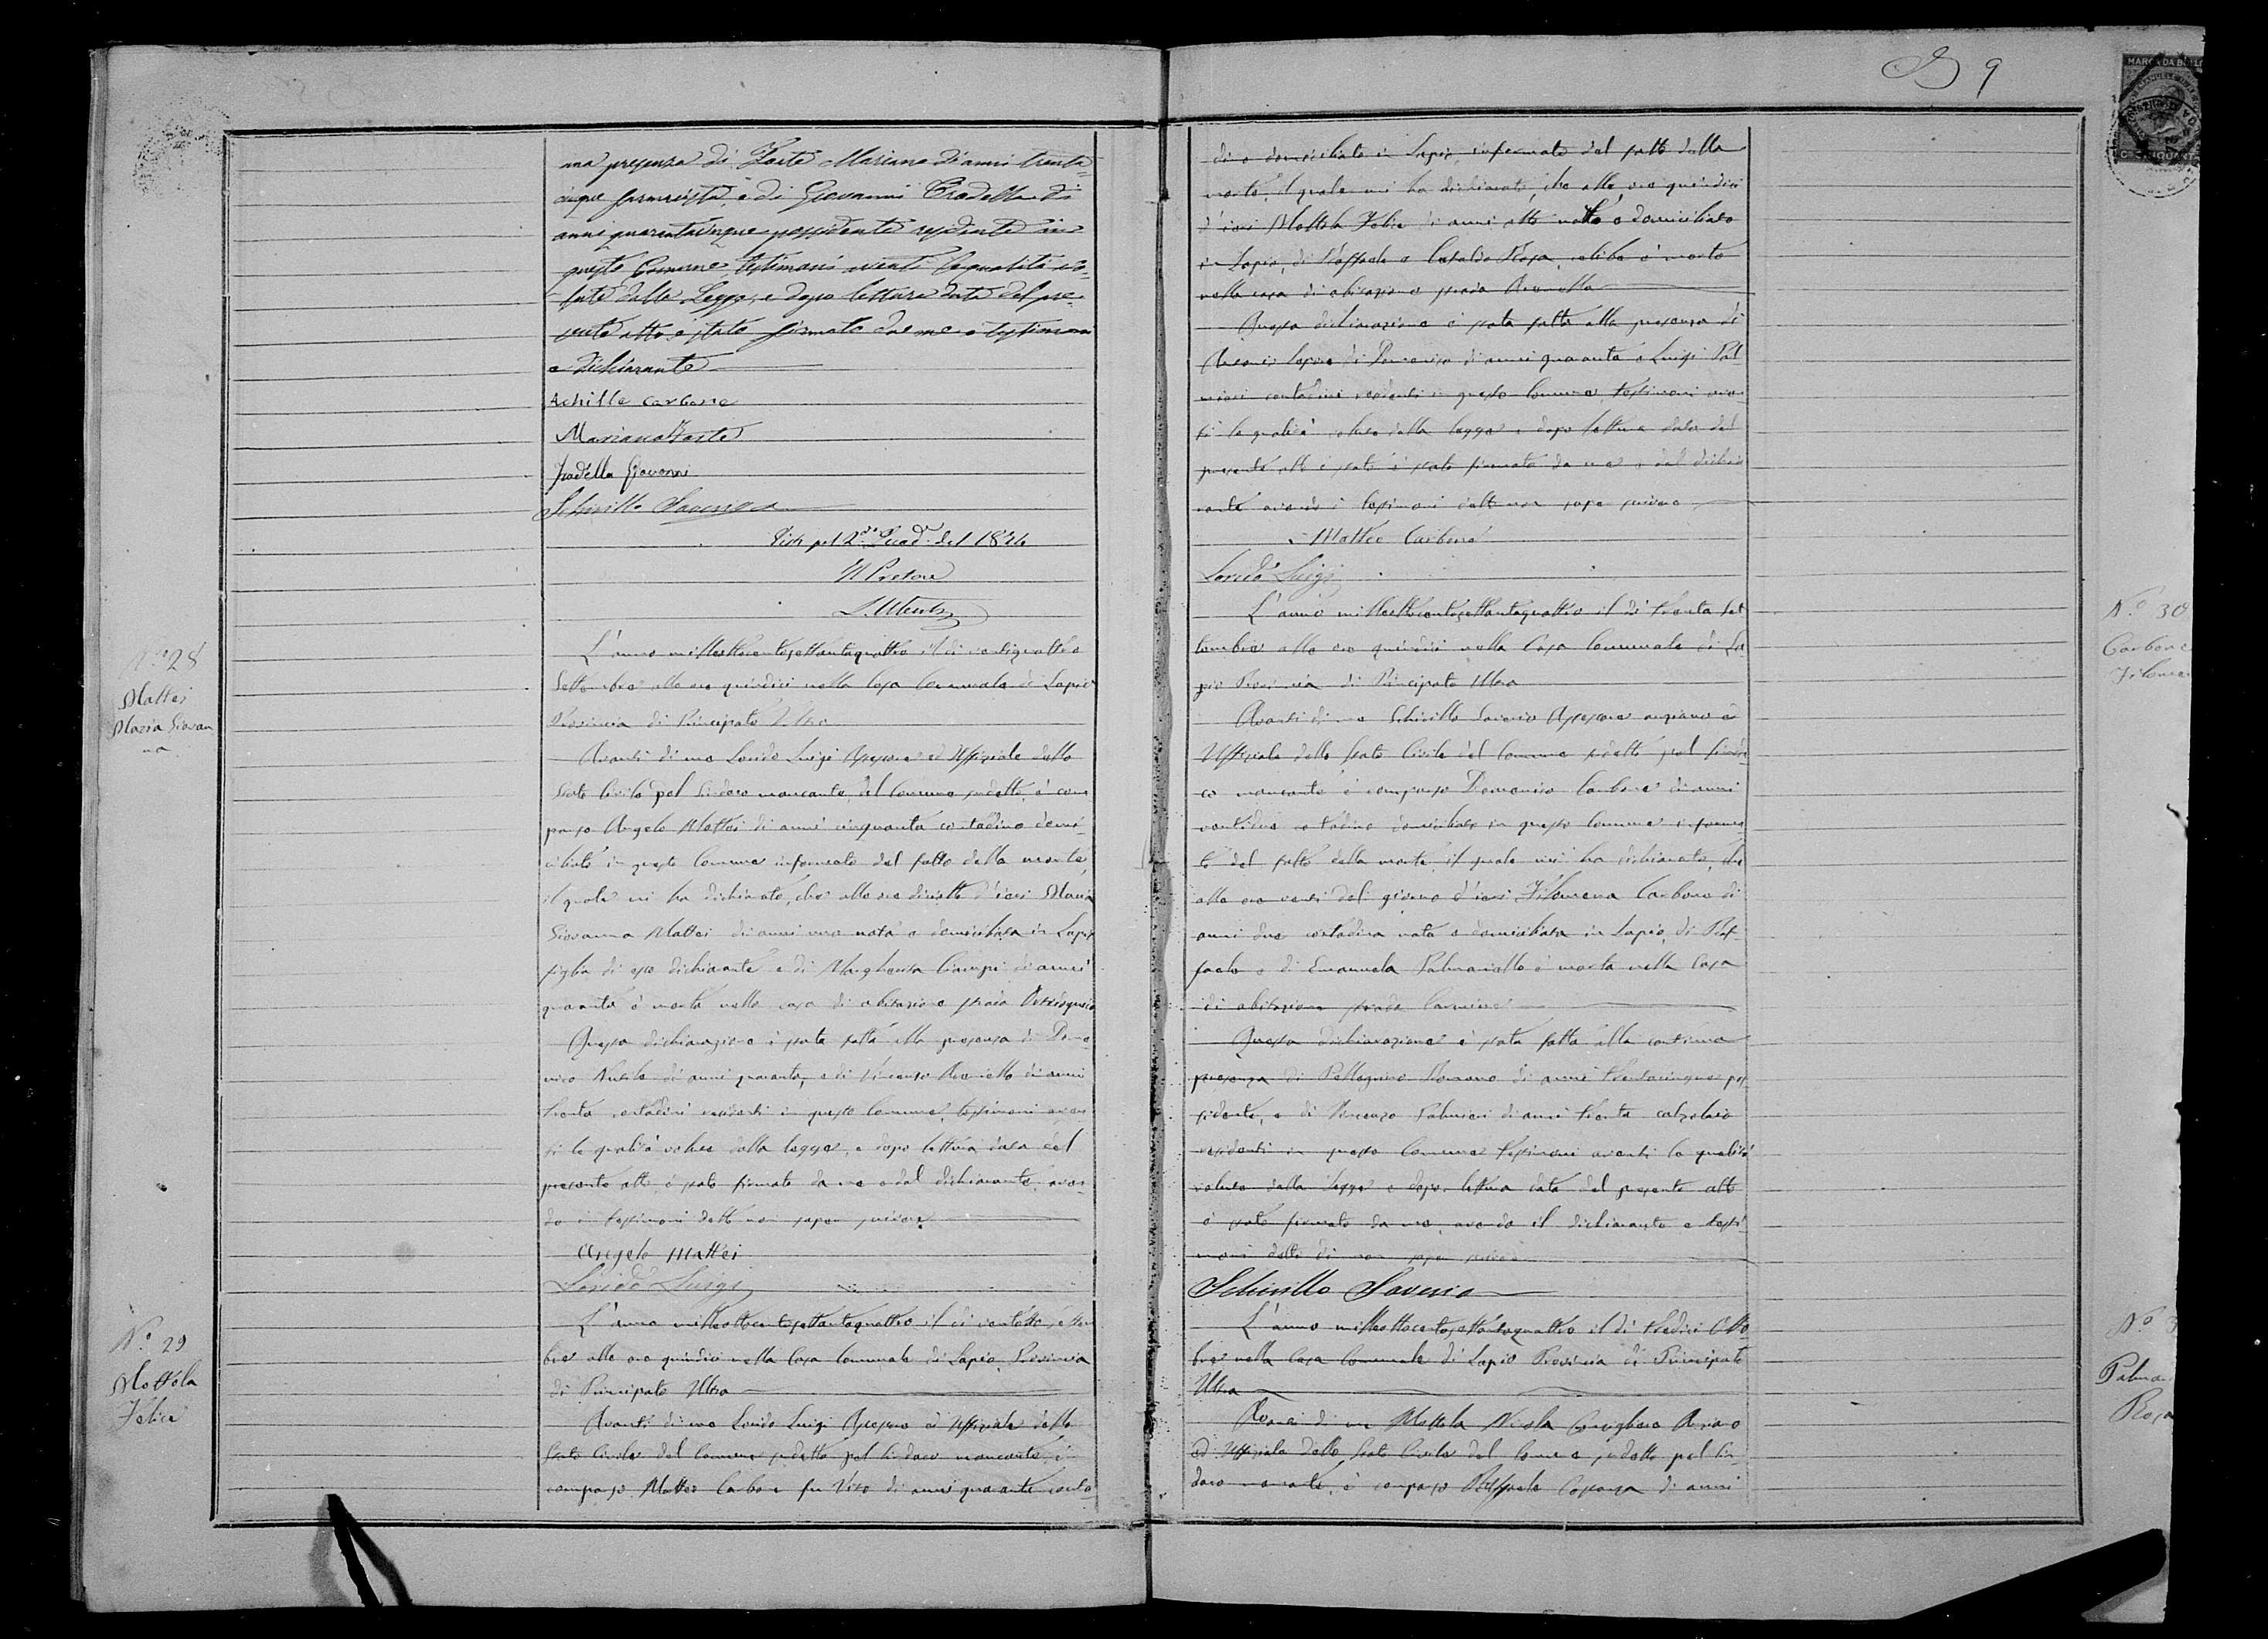 9
MARCA DA BOLLO
una presenza di Forte Mariano di anni trenta-
cinque farmacista, e di Giovanni Pradella di
anni quarantacinque possidente residente in
questo Comune, testimoni aventi le qualità vo-
lute dalla Legge, e dopo lettura data del pre-
sente atto è stato firmato da me e testimoni
e dichiarante
Achille Carbone
Mariano Forte
Pradella Giovanni
Schirillo Saverio
Visto pel 2° Quad. del 1874
Il Pretore
N° 28
Mattei
Maria Giovan
na
L'anno milleottocentosettantaquattro il dì ventiquattro
Settembre alle ore quindici nella Casa Comunale di Lapio
Provincia di Principato Ultra
Avanti di me Lonido Luigi Assessore ed Uffiziale dello
Stato Civile pel Sindaco mancante, del Comune sudetto, è com
parso Angelo Mattei di anni cinquanta contadino domi-
ciliato in questo Comune informato del fatto della morte,
il quale mi ha dichiarato, che alle ore diciotto d'ieri Maria
Giovanna Mattei di anni una nata e domiciliata in Lapio
figlia di esso dichiarante e di Margherita Ciampi di anni
quaranta è morta nella casa di abitazione strada
Questa dichiarazione è stata fatta alla presenza di Dome
nico di anni quaranta, e di Vincenzo di anni
trenta contadini residenti in questo Comune, testimoni aven
ti le qualità volute dalla legge, e dopo lettura data del
presente atto, è stato firmato da me e dal dichiarante, aven-
do i testimoni detto non saper scrivere
Angelo Mattei
Lonido Luigi
N° 29
Mottola
Felice
L'anno milleottocentosettantaquattro il dì ventotto settem
bre alle ore quindici nella Casa Comunale di Lapio, Provincia
di Principato Ultra
Avanti di me Lonido Luigi Assessore ed Uffiziale dello
Stato Civile del Comune sudetto pel Sindaco mancante, è
comparso Matteo Carbone fu Vito di anni quaranta conta
dino domiciliato in Lapio, informato del fatto della
morte, il quale mi ha dichiarato, che alle ore quindici
d'ieri Mottola Felice di anni otto nato e domiciliato
in Lapio, di Raffaele e Cataldo Rosa, celibe è morto
nella casa di abitazione strada
Questa dichiarazione è stata fatta alla presenza di
di Domenico di anni quaranta e Luigi Pal
mieri contadini residenti in questo Comune, testimoni aven
ti le qualità volute dalla legge e dopo lettura data del
presente atto è stato è stato firmato da me e dal dichia
rante avendo i testimoni detto non saper scrivere
Matteo Carbone
Lonido Luigi
N° 30
Carbone
Filomena
L'anno milleottocentosettantaquattro il dì trenta Set
tembre alle ore quindici nella Casa Comunale di La-
pio Provincia di Principato Ultra
Avanti di me Schirillo Saverio Assessore anziano ed
Uffiziale dello Stato Civile del Comune sudetto pel Sinda
co mancante è comparso Domenico Carbone di anni
ventidue contadino domiciliato in questo Comune informa
to del fatto della morte, il quale mi ha dichiarato, che
alle ore venti del giorno d'ieri Filomena Carbone di
anni due contadina nata e domiciliata in Lapio, di Raf-
faele e di Emanuela Palmariello è morta nella Casa
di abitazione strada Carmine
Questa dichiarazione è stata fatta alla continua
presenza di Pellegrino Romano di anni trentacinque pos
sidente, e di Vincenzo Palmieri di anni trenta calzolaio
residenti in questo Comune testimoni aventi le qualità
volute dalla legge e dopo lettura data del presente atto
è stato firmato da me, avendo il dichiarante e testi
moni detto di non saper scrivere
Schirillo Saverio
N° 3
Palma
Rosa
L'anno milleottocentosettantaquattro il dì tredici Otto
bre nella Casa Comunale di Lapio Provincia di Principato
Ultra
Avanti di me Mottola Nicola Consigliere Anziano
ed Uffiziale dello Stato Civile del Comune sudetto pel Sin
daco mancante, è comparso Raffaele di anni